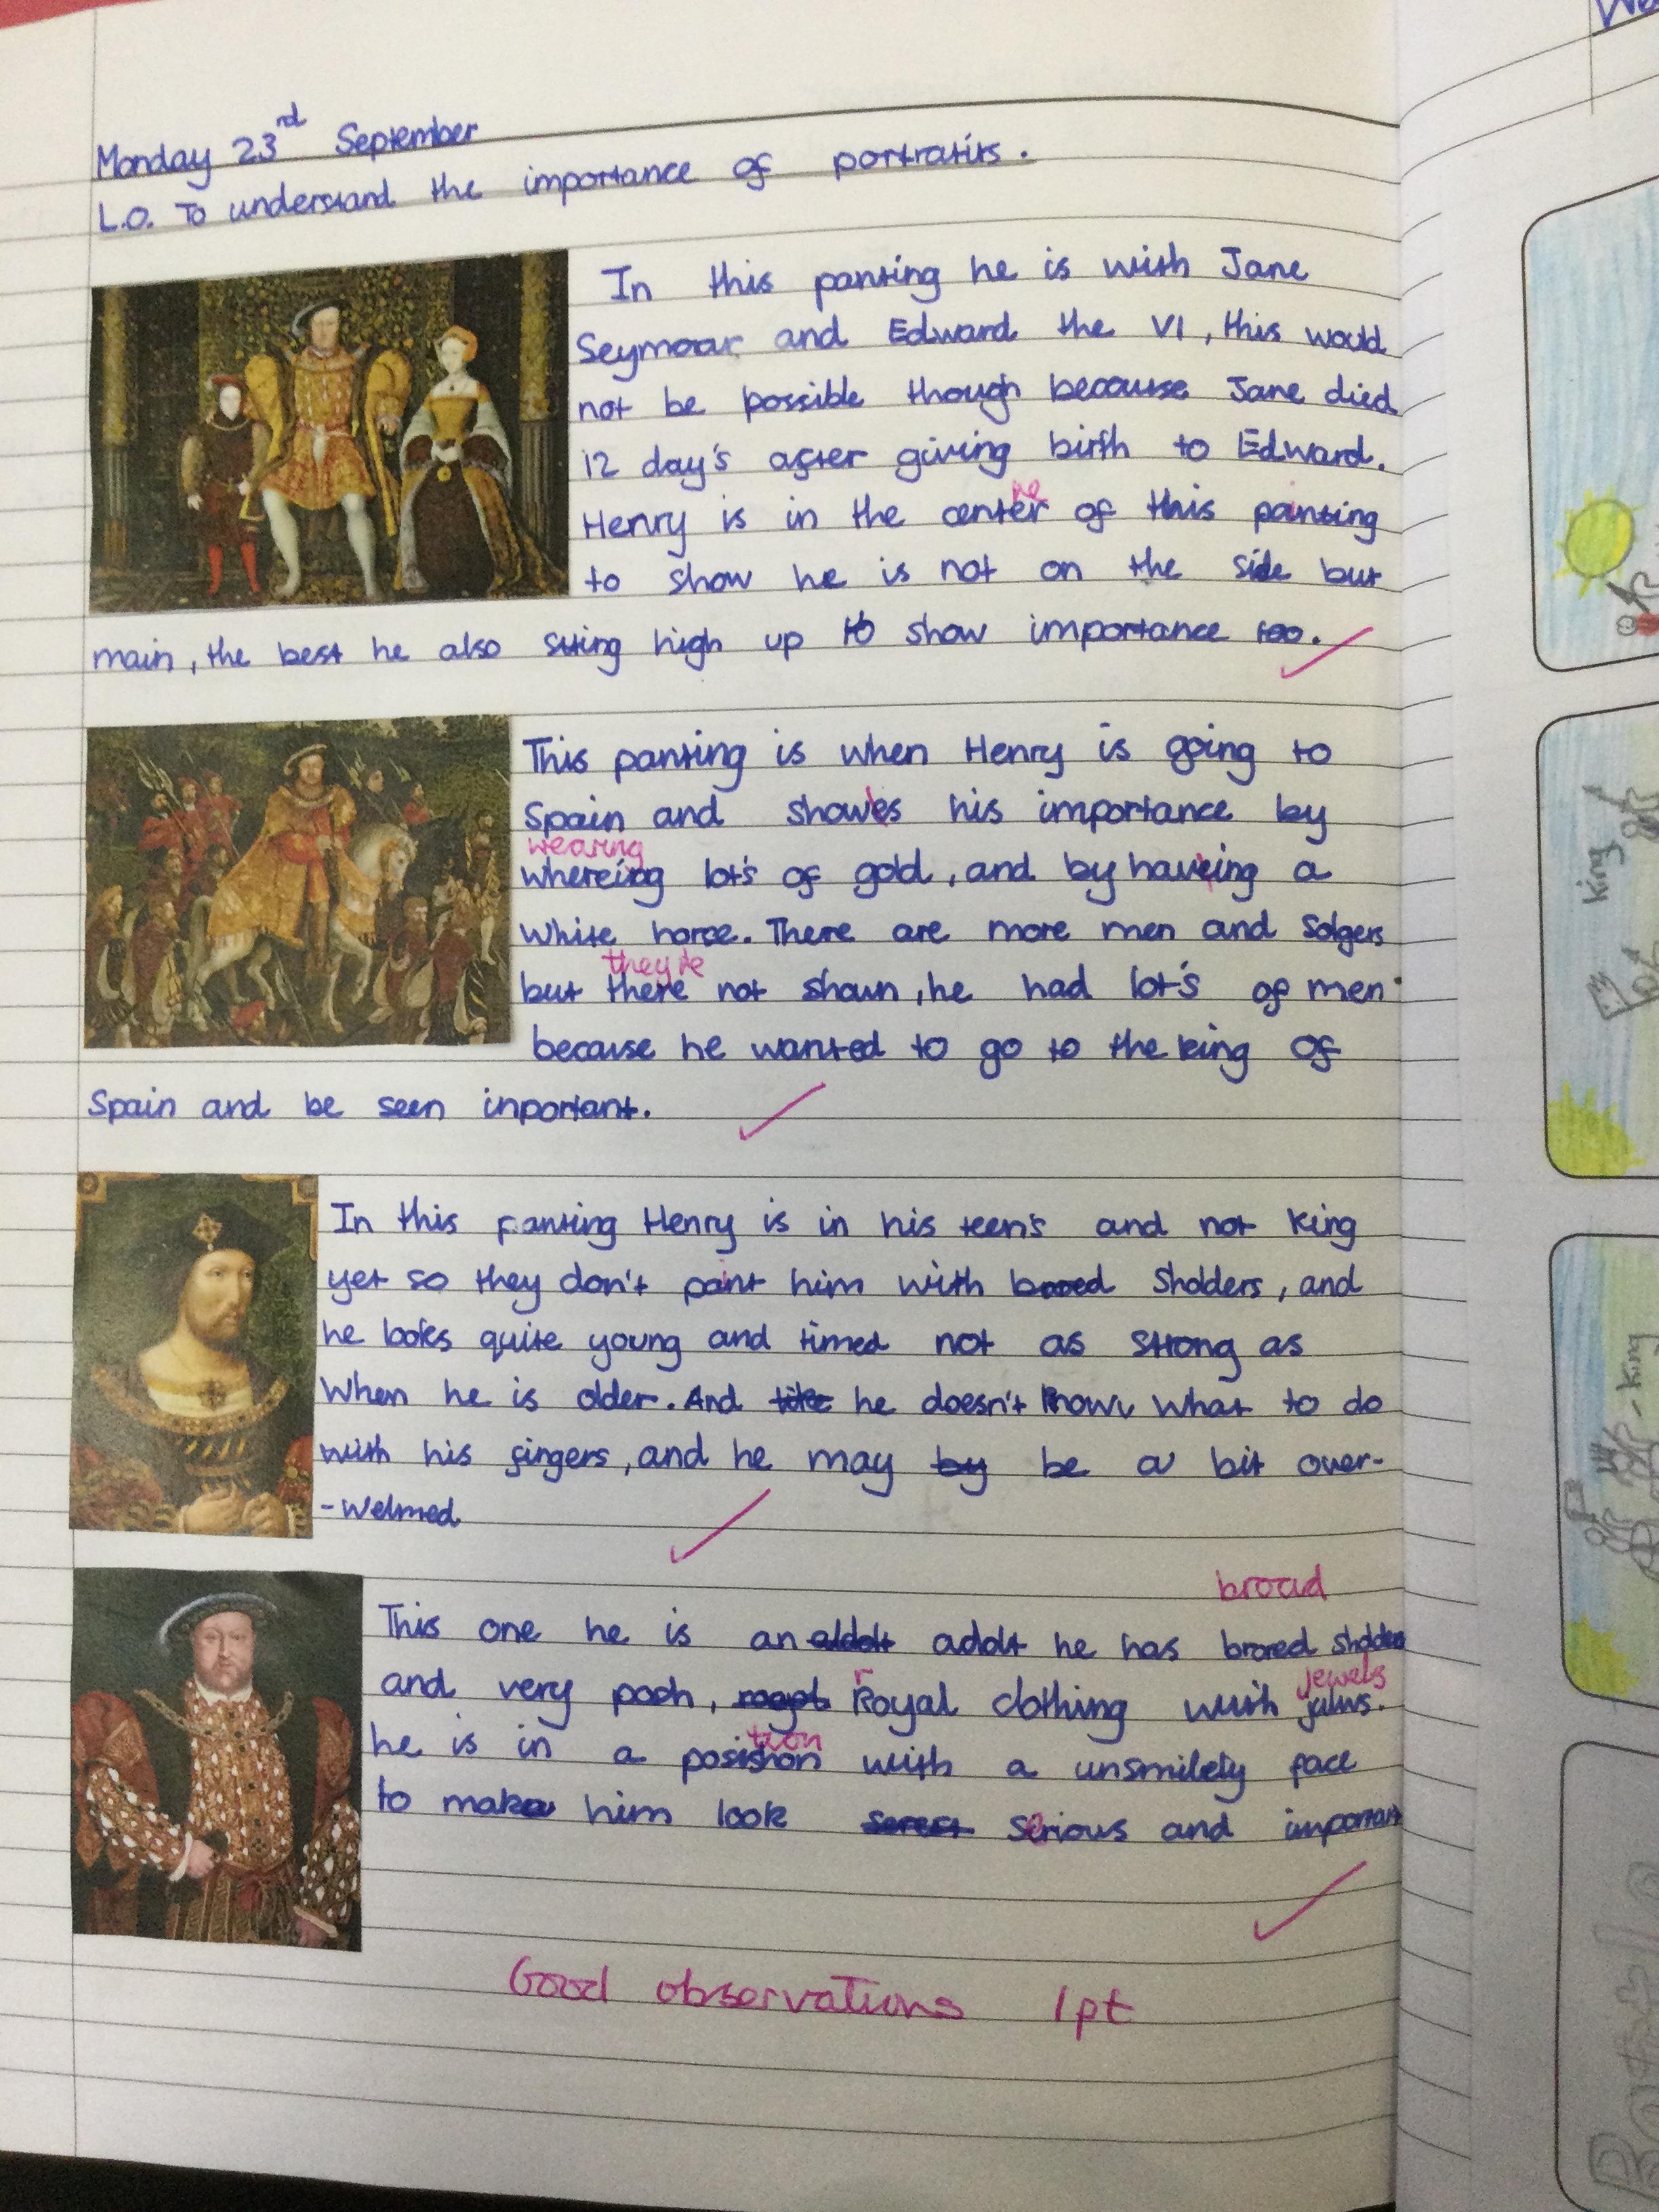 Monday 23rd September
L.O. To understand the importance of portratits.
In this panting he is with Jane
Seymoar and Edward the VI, this would
not be possible though because Jane died
12 day's after giving birth to Edward.
re
Henry is in the center of this painting
to show he is not on the side but
main, the best he also siting high up to show importance too.
This panting is when Henry is going to
Spain and showes his importance by
wearing
whereing lot's of gold, and by haveing a
white horce. There are more men and Solgers
they're
but there not shown, he had lot's of men
because he wanted to go to the king of
Spain and be seen inportant.
In this panting Henry is in his teen's and not king
yet so they don't paint him with broed Sholders, and
he looks quite young and timed not as strong as
When he is older. And he doesn't know what to do
with his fingers, and he may by be a bit over-
-welmed
broad
This one he is an addlt he has brored sholders
and very posh, r Royal clothing with jewls.
jewels
tion
he is in a posishon with a unsmilely face
to make him look serious and important
Good observations 1pt
king
-king